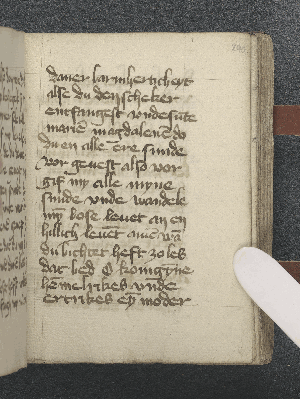 diner barmherticheyt
alse du den scheker
entfangest vnde sute
marie magdalene do
du en alle ere sunde
vor geuest also vor
gif my alle myne
sunde vnde wandele
myn bose leuet an en
hillich leuet
du bichtet heft so les
dat bed O konigynne
hemelrikes vnde
ertrikes eyn moder